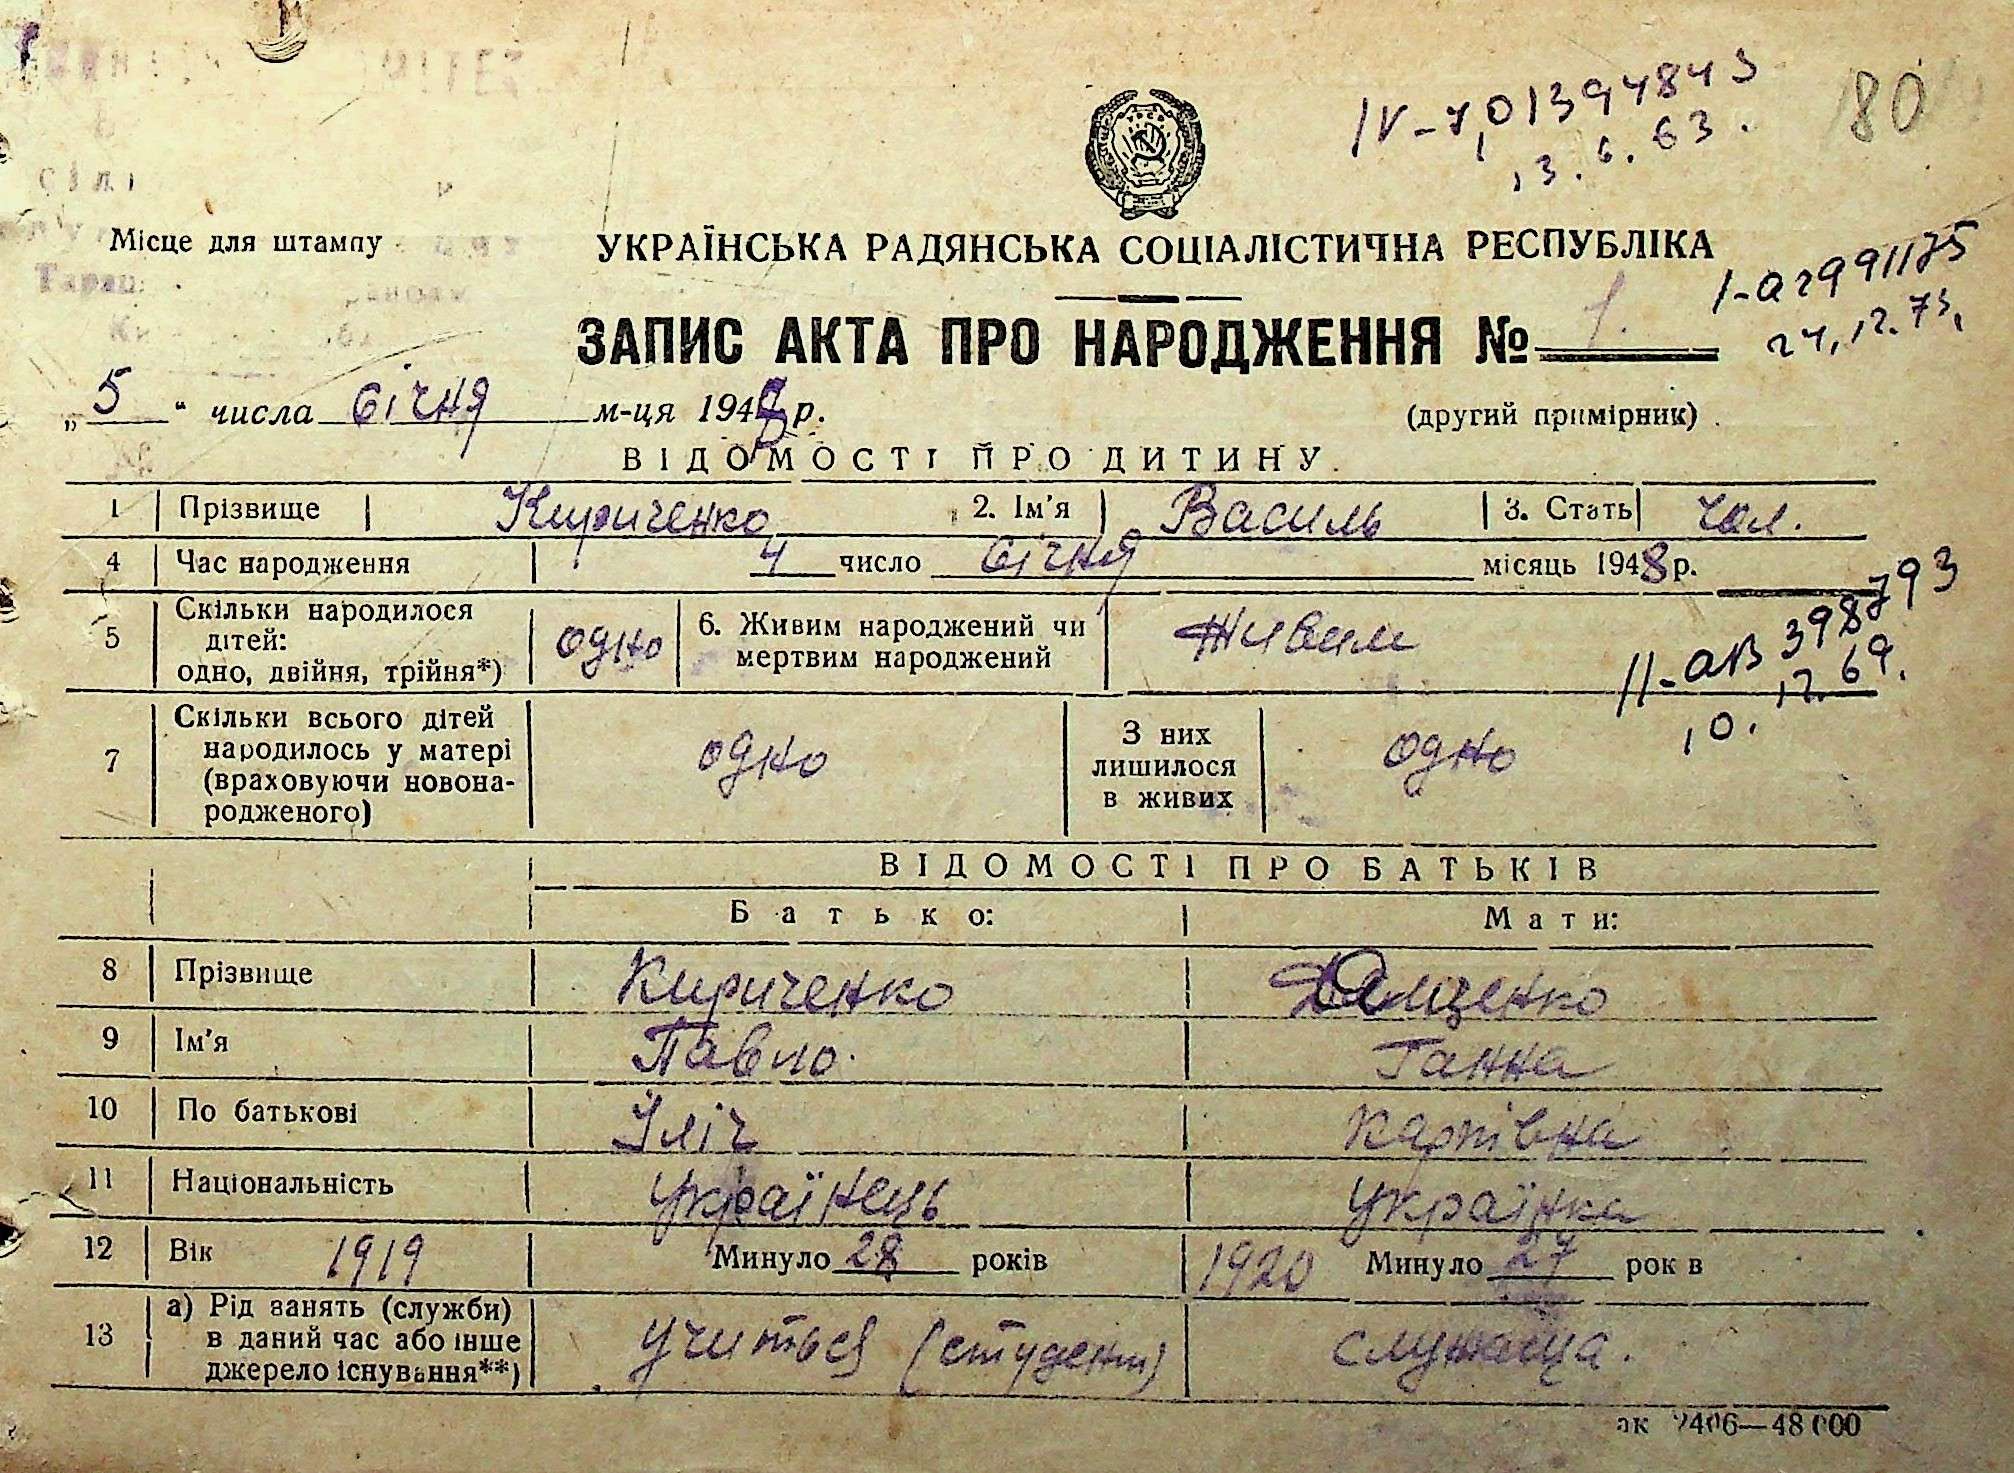 IV-УЮ1394843
13.6.63.
80
Місце для штампу
УКРАЇНСЬКА РАДЯНСЬКА СОЦІАЛІСТИЧНА РЕСПУБЛІКА
I-а2991175
24.12.73.
ЗАПИС АКТА ПРО НАРОДЖЕННЯ № 1.
„5“ числа січня м-ця 1948 р.
(другий примірник)
ВІДОМОСТІ ПРО ДИТИНУ
1 Прізвище Кириченко 2. Ім'я Василь 3. Стать чол.
4 Час народження 4 число січня місяць 1948 р.
5 Скільки народилося дітей: одно, двійня, трійня*) одно 6. Живим народжений чи мертвим народжений Живим
II-аВ 398793
10.12.69.
7 Скільки всього дітей народилось у матері (враховуючи новонародженого) одно З них лишилося в живих одно
ВІДОМОСТІ ПРО БАТЬКІВ
Батько: Мати:
8 Прізвище Кириченко
9 Ім'я Павло Ганна
10 По батькові Іліч Карпівна
11 Національність українець українка
12 Вік 1919 Минуло 28 років 1920 Минуло 27 рок в
13 а) Рід занять (служби) в даний час або інше джерело існування**) учиться (студент) служаща.
ак 2406—48 000